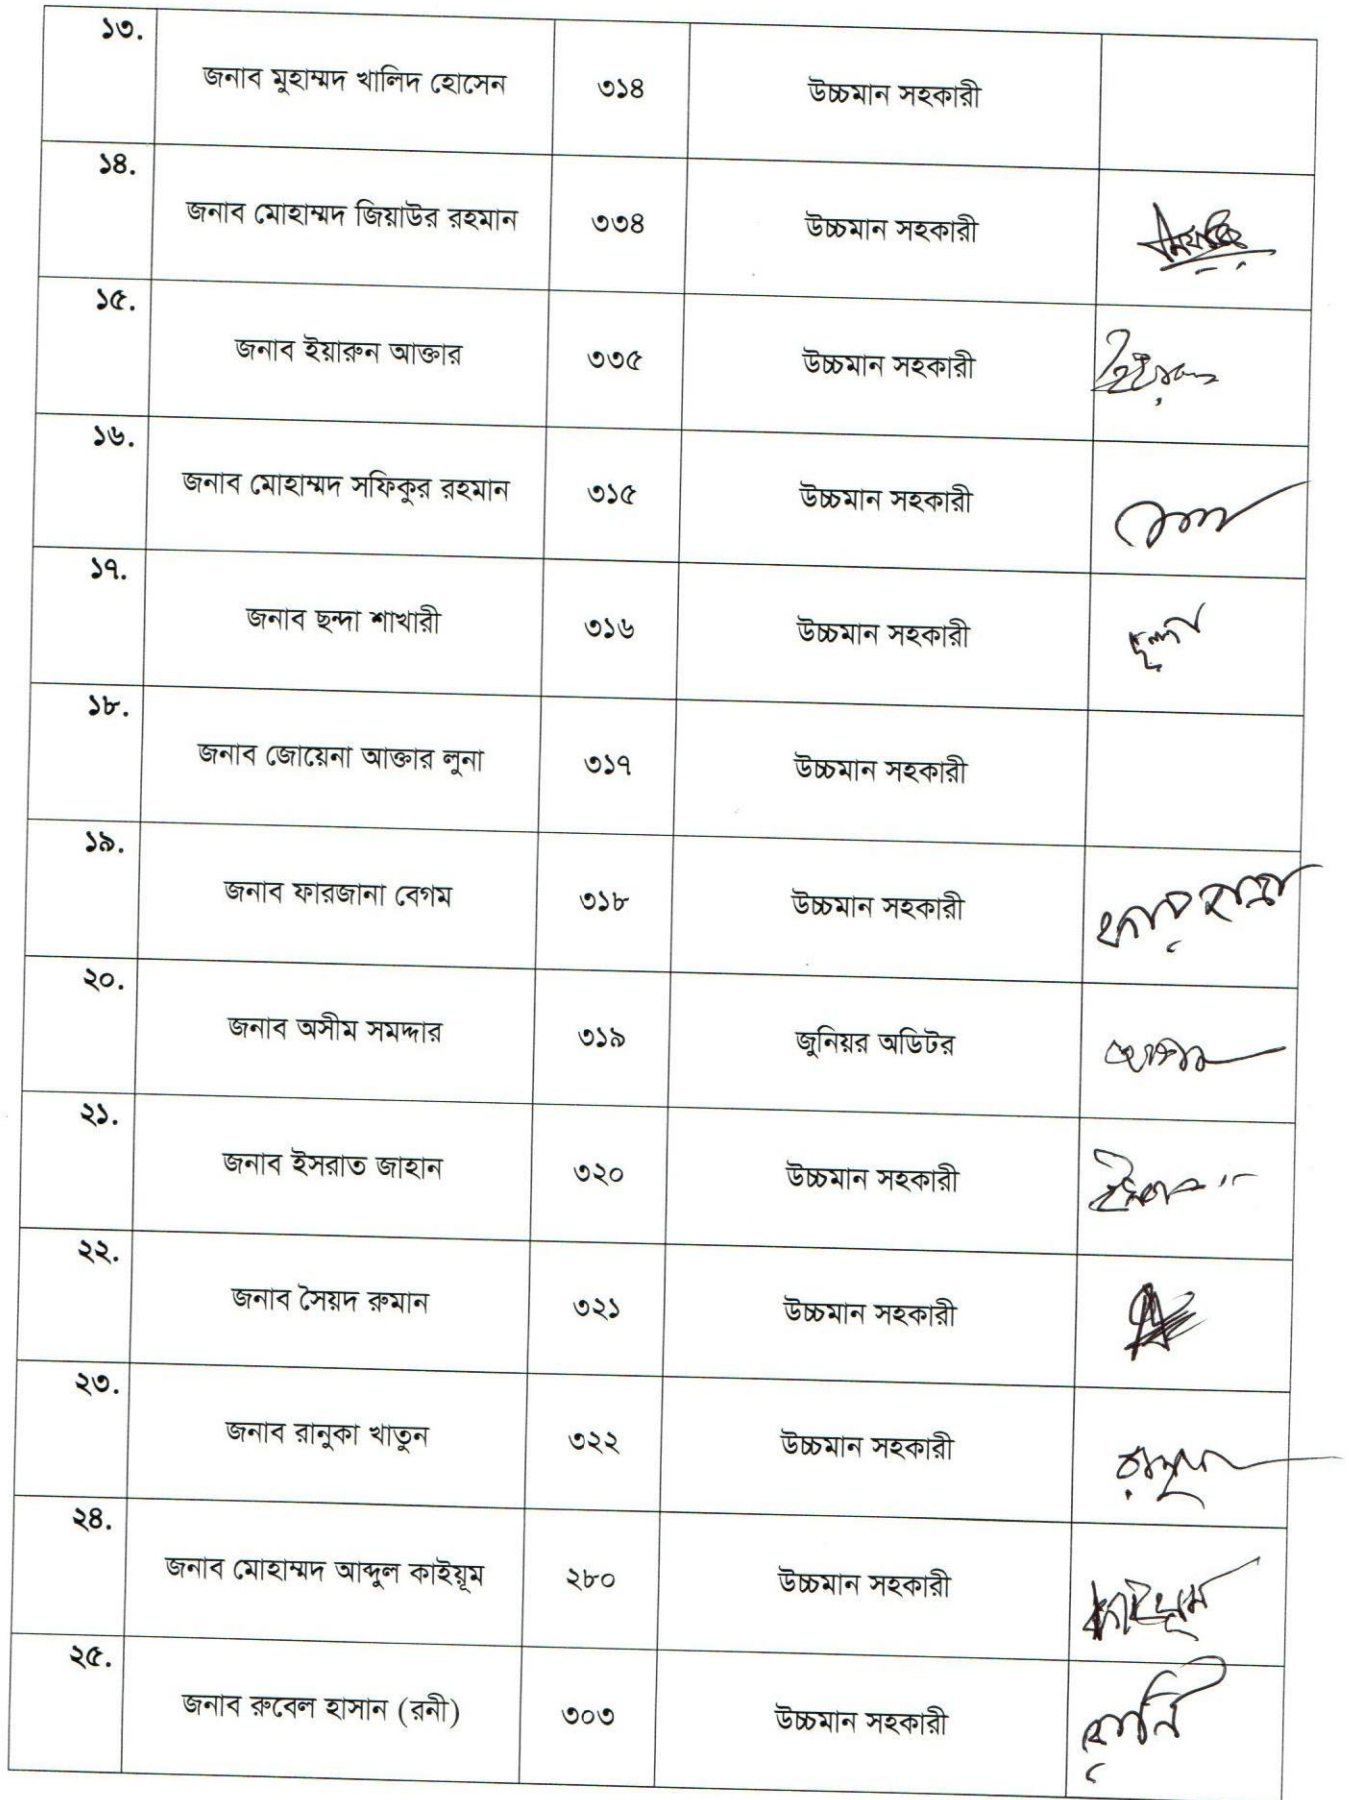 ১৩. জনাব মুহাম্মদ খালিদ হোসেন ৩১৪ উচ্চমান সহকারী
১৪. জনাব মোহাম্মদ জিয়াউর রহমান ৩৩৪ উচ্চমান সহকারী
১৫. জনাব ইয়ারুন আক্তার ৩৩৫ উচ্চমান সহকারী
১৬. জনাব মোহাম্মদ সফিকুর রহমান ৩১৫ উচ্চমান সহকারী
১৭. জনাব ছন্দা শাখারী ৩১৬ উচ্চমান সহকারী ছন্দা
১৮. জনাব জোয়েনা আক্তার লুনা ৩১৭ উচ্চমান সহকারী
১৯. জনাব ফারজানা বেগম ৩১৮ উচ্চমান সহকারী
২০. জনাব অসীম সমদ্দার ৩১৯ জুনিয়র অডিটর
২১. জনাব ইসরাত জাহান ৩২০ উচ্চমান সহকারী
২২. জনাব সৈয়দ রুমান ৩২১ উচ্চমান সহকারী
২৩. জনাব রানুকা খাতুন ৩২২ উচ্চমান সহকারী
২৪. জনাব মোহাম্মদ আব্দুল কাইয়ূম ২৮০ উচ্চমান সহকারী কাইয়ূম
২৫. জনাব রুবেল হাসান (রনী) ৩০৩ উচ্চমান সহকারী